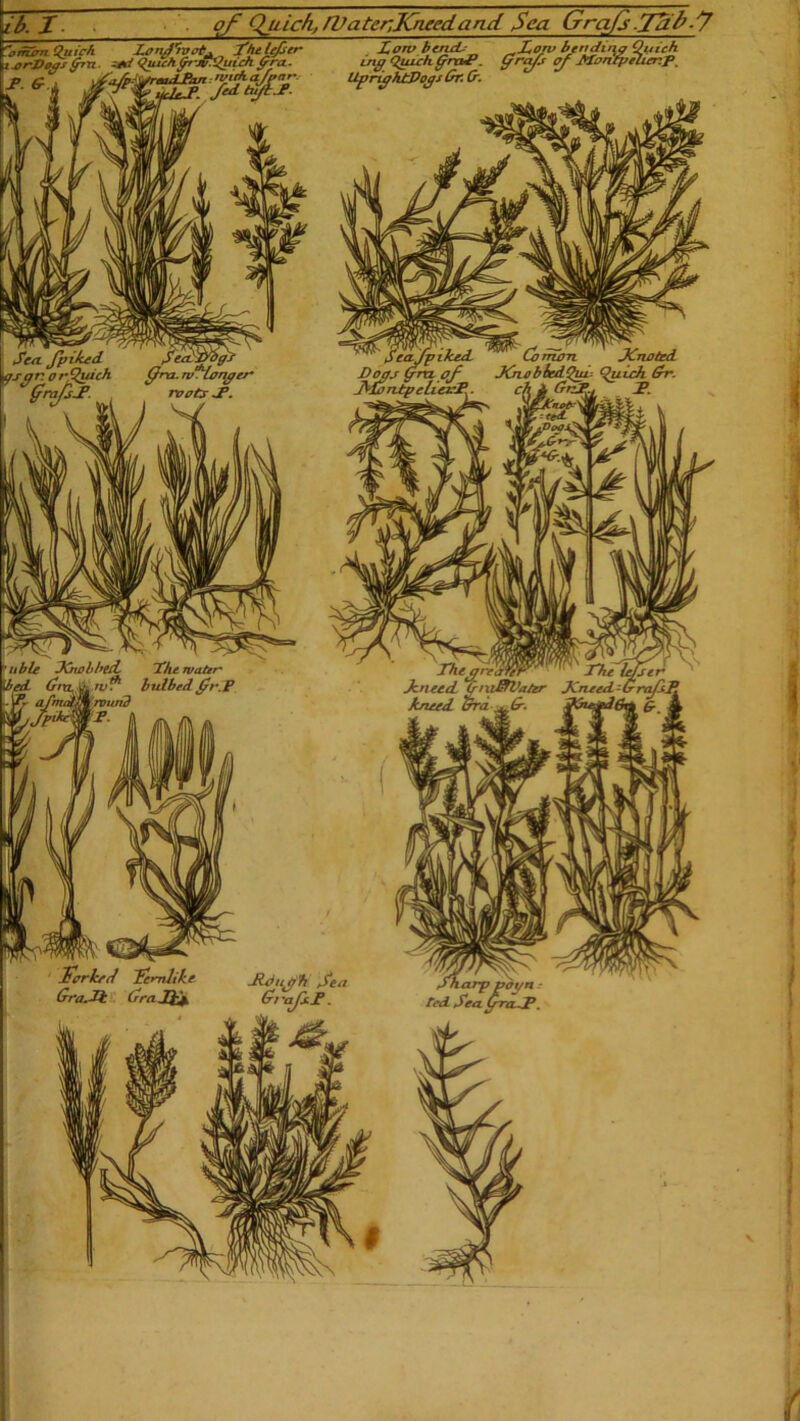 ib. I. of Quich, Water, Kneed and Sea Graſs. Tab. 7
Comon Quich
or Dogs
P. G.
The leſser
Quich gra.
Low bend-
ing Quich graſ P.
Upright Dogs Gr. G.
Low bending Quich
graſs of Montpelier. P.
Sea ſpiked
gr. or Quich
graſs. P.
Sea Dogs
gra. wth longer
roots. P.
Sea ſpiked
Dogs gra. of
Montpelier. P.
Comon
Knobbed Qui-
ch Gr. P.
Knoted
Quich Gr.
P.
Knot-
ted
Dogs
Gr.
G.
uble Knobbed
bed Gra. wth
P. a ſmal round
ſpike P.
The water
bulbed gr. P
The greater
kneed gra. P Water
kneed Gra. G.
The leſser
Kneed-Graſs. P
Kneed Gra G.
Forked
Gra.
Fernlike
Gra.
Rough Sea
Graſs. P.
Sharp poyn-
ted Sea gra. P.